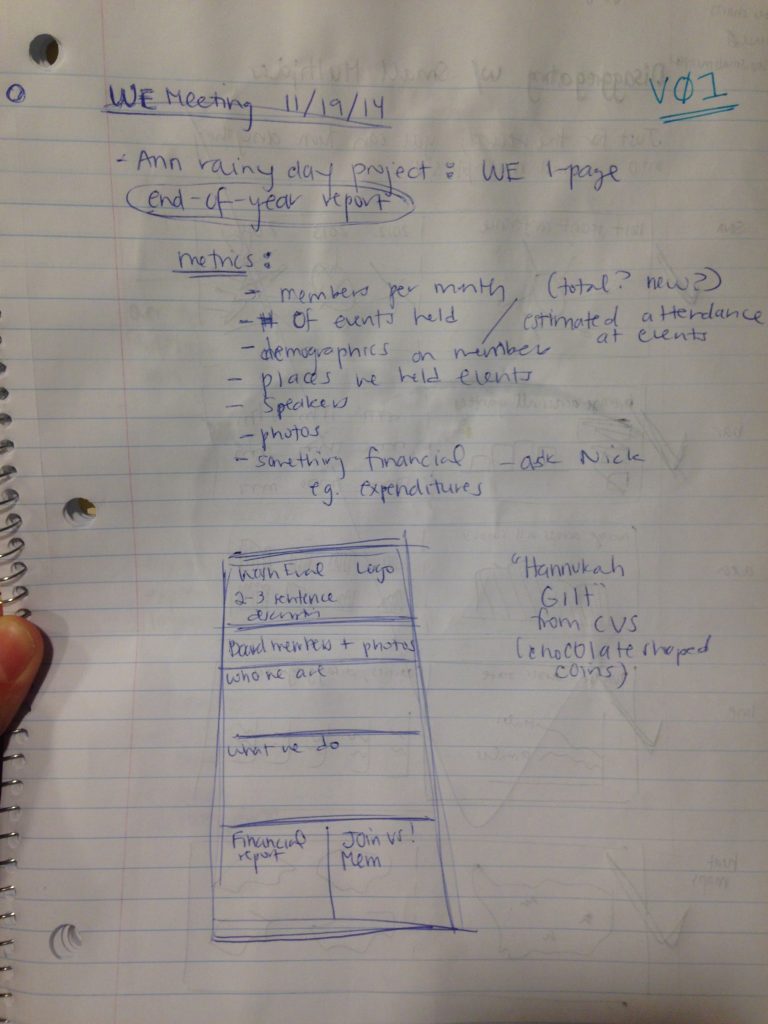 WE Meeting 11/19/14
VØ1
- Ann rainy day project : WE 1-page
end-of-year report
metrics:
- members per month (total? new?)
- # of events held
estimated attendance
at events
- demographics on member
- places we held events
- Speakers
- photos
- something financial - ask Nick
eg. expenditures
Wash Eval Logo
2-3 sentence
Board members + photos
who we are
what we do
Financial
report
Join us!
Mem
"Hannukah
Gilt"
from CVS
(chocolate shaped
coins).